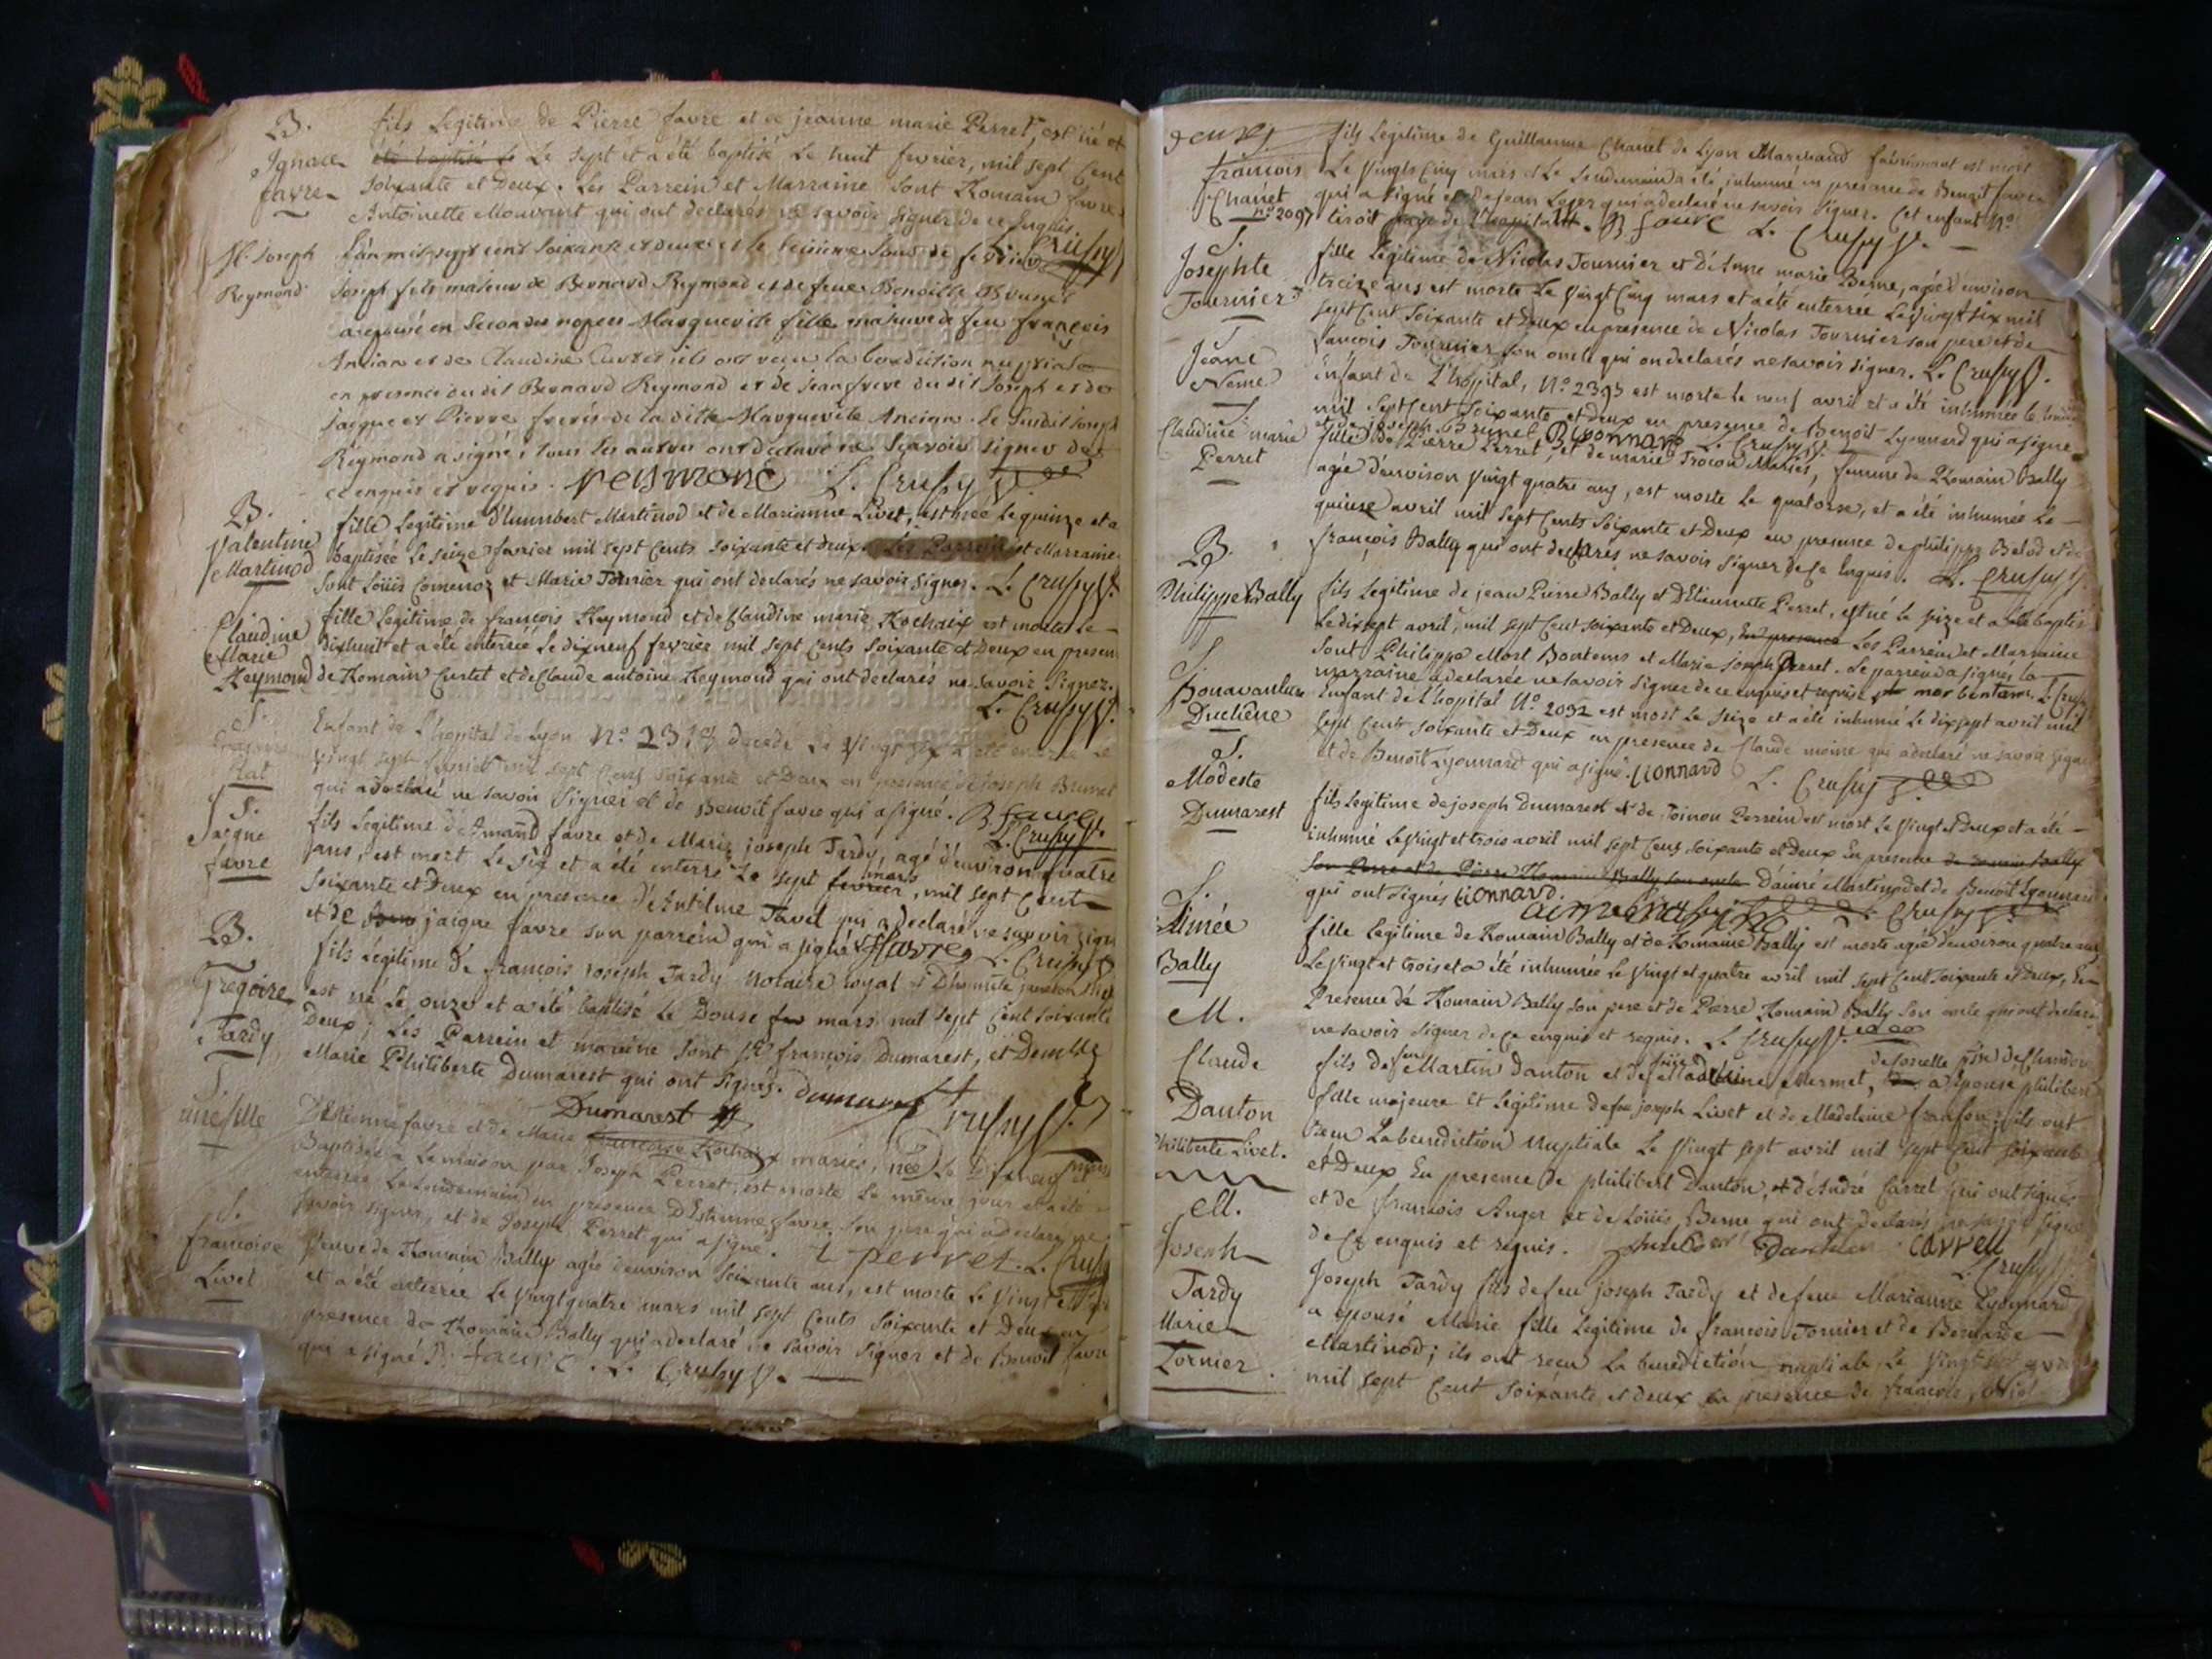 B.
Ignace
favre
fils Legitime de Pierre favre et de jeanne marie Perret, est né et
été baptisé le Le sept et a été baptisé Le huit fevrier, mil sept Cent
soixante et Deux. Les Parrein et Marraine sont Romain favre
Antoinette Mouvant qui ont declarés ne savoir signer de ce enquis
L. Crussy
M. Joseph
Reymond
L'an mil sept cent soixante et deux et le
Joseph fils majeur de Bernard Reymond et de feue Benoitte
a epousé en secondes nopces Marguerite fille majeure de feu françois
Ancian et de Claudine ils ont reçu la benediction nuptiale
en presence du dit Bernard Reymond et de jean frere du dit Joseph et de
jacque et Pierre freres de la ditte Marguerite Ancian. Le susdit joseph
Reymond a signé, tous les autres ont declaré ne sçavoir signer de
ce enquis et requis. reymond L. Crussy
B.
Valentine
Martinod
fille Legitime d'humbert Martinod et de Marianne Livet, est née le quinze et a
baptisée le seize fevrier mil sept Cents soixante et deux. Les Parrein et Marraine
sont Loüis et Marie Tornier qui ont declarés ne savoir signer. L. Crussy
Claudine
Marie
Reymond
fille Legitime de françois Reymond et de Claudine marie Rochaix est morte Le
dixhuit et a été enterrée Le dixneuf fevrier mil sept Cents soixante et Deux en presen
de Romain Curtet et de Claude antoine Reymond qui ont declarés ne savoir signer.
L. Crussy
S.
Enfant de L'hopital de Lyon N°. decedé Le Vingt six a été enterré Le
vingt sept fevrier mil sept Cens soixante et Deux en presence de Joseph Brunet
qui a declaré ne savoir signer et de Benoit favre qui a signé. B favre
L. Crussy
S.
Jacque
favre
fils Legitime d'Amand favre et de Marie joseph Tardy, agé d'environ quatre
ans, est mort Le six et a été enterré Le sept fevrier mars, mil sept Cent
soixante et Deux en presence d'Antelme Tavel qui a declaré ne savoir sign
et de jacque favre son parrein qui a signé favre L. Crussy
B.
Gregoire
Tardy
fils Légitime de françois joseph Tardy Notaire royal
est né Le onze et a été baptisé Le Douse mars mil sept Cent soixante
Deux; Les Parrein et maraine sont Sr. françois Dumarest, et Demlle
Marie Philiberte Dumarest qui ont signés. dumarest
Dumarest Crussy
S.
une fille
D'Etienne favre et de Marie françoise Rochaix mariés, née Le Dixneuf mars et
Baptisée a La maison par Joseph Perret, est morte Le même jour et a été
enterrée Le Lendemain en presence D'Estienne favre son pere qui a declaré ne
savoir signer, et de Joseph Perret qui a signé. perret. L. Crussy
S.
françoise
Livet
Veuve de Romain Bally agée d'environ soixante ans, est morte Le Vingt
et a été enterrée Le Vingt quatre mars mil sept Cents soixante et Deux en
presence de Romain Bally qui a declaré ne savoir signer et de Benoit favre
qui a signé B favre. L. Crussy
françois
Chanet
n°. 2097
fils Legitime de Guillaume Chanet de Lyon Marchand est mort
Le Vingt Cinq mars et Le Lendemain a été inhumé en presence de Benoit favre
qui a signé et de jean Leger qui a declaré ne savoir signer. Cet enfant
B favre L. Crussy
S.
Josephte
Tournier
fille Legitime de Nicolas Tournier et D'Anne marie Berne, agée d'environ
treize ans est morte Le Vingt Cinq mars et a été enterrée Le Vingt six mil
sept Cent soixante et Deux en presence de Nicolas Tournier son pere et de
françois Tournier son oncle qui on declarés ne savoir signer. L. Crussy
Jeane
Neme
Enfant de L'hopital, N°. 2393 est morte le neuf avril et a été inhumée le
mil sept Cent soixante et Deux en presence de Benoit Lyonnard qui a signe
et de joseph Brunet B lyonnard L. Crussy
S.
Claudine marie
Perret
fille de Pierre Perret, et de marie Trocon Mariés, femme de Romain Bally
agée d'environ vingt quatre ans, est morte Le quatorse, et a été inhumée Le
quinze avril mil sept Cents soixante et Deux en presence de philippe Belod et de
françois Bally qui ont declarés ne savoir signer de Ce Enquis. L. Crussy
B.
Philippe Bally
fils Legitime de jean Pierre Bally et D'Etiennette Perret, est né le seize et a été baptis
Le dix sept avril, mil sept Cent soixante et Deux, En presence Les Perrein et Marraine
sont Philippe Mort Bontems et Marie joseph Perret. Le parrein a signés la
marraine a declarée ne savoir signer de ce enquis et requise mor bontems. L. Crussy
S.
Bonavanture
Duchêne
Enfant de L'hopital N°. 2032 est mort Le seize et a été inhumé Le dix sept avril mil
sept Cents soixante et Deux en presence de Claude moine qui a declaré ne savoir signe
et de Benoit Lyonnard qui a signé. lionnard L. Crussy
S.
Modeste
Dumarest
fils Legitime de joseph Dumarest et de Toinon Perrein est mort Le Vingt et Deux et a été
inhumé Le Vingt et trois avril mil sept Cens soixante et Deux En presence de Romain Bally
son Pere et de Pierre Romain Bally son oncle D'aimé Martinod et de Benoit Lyonnard
qui ont signés lionnard. L. Crussy
S.
Aimée
Bally
fille Legitime de Romain Bally et de Romaine Bally est morte agée d'environ quatre ans
Le Vingt et trois et a été inhumée Le Vingt et quatre avril mil sept Cent soixante et Deux, En
Presence de Romain Bally son pere et de Pierre Romain Bally son oncle qui ont declaré
ne savoir signer de Ce enquis et requis. L. Crussy
M.
Claude
Danton
Philiberte Livet.
fils de feu Martin Danton et de Mermet, a Epousé philiberte
fille majeure et Legitime de feu joseph Livet et de Madeleine ils ont
recu La benediction Nuptiale Le Vingt sept avril mil sept Cent soixante
et Deux En presence de philibert Danton, et d'André Carret qui ont signés
et de francois Auger et de Loüis Berne qui ont declarés ne savoir signe
de Ce enquis et requis. Danton carrell
L. Crussy
M.
Joseph
Tardy
Marie
Tornier.
Joseph Tardy fils de feu joseph Tardy et de feue Marianne Lyonnard
a epousé Marie fille Legitime de françois Tornier et de Bernarde
Martinod; ils ont recu La benediction nuptiale Le Vingt
mil sept Cent soixante et deux en presence de francois